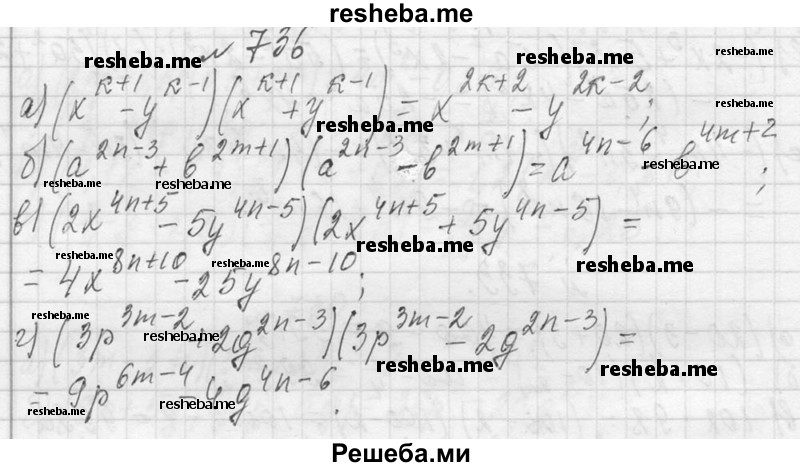 resheba.me
№ 736
resheba.me resheba.me resheba.me
а) (x^{к+1} - y^{к-1})(x^{к+1} + y^{к-1}) = x^{2к+2} - y^{2к-2};
resheba.me resheba.me
б) (a^{2n-3} + в^{2m+1})(a^{2n-3} - в^{2m+1}) = a^{4n-6} - в^{4m+2};
resheba.me resheba.me resheba.me
в) (2x^{4n+5} - 5y^{4n-5})(2x^{4n+5} + 5y^{4n-5}) =
resheba.me resheba.me resheba.me
= 4x^{8n+10} - 25y^{8n-10};
resheba.me
г) (3p^{3m-2} + 2g^{2n-3})(3p^{3m-2} - 2g^{2n-3}) =
resheba.me resheba.me resheba.me
= 9p^{6m-4} - 4g^{4n-6}.
resheba.me resheba.me
Решеба.ми